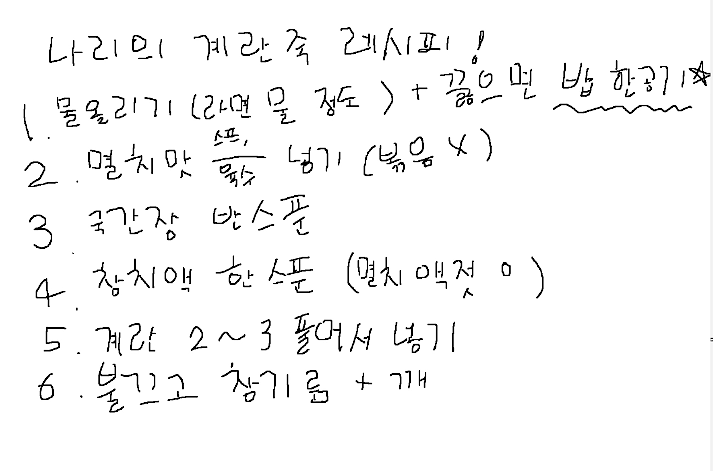 나리의 계란죽 레시피!
1. 물올리기 (라면 물 정도) + 끓으면 밥 한공기☆
2. 멸치맛 스프, 육수 넣기 (볶음 X)
3. 국간장 반스푼
4. 참치액 한스푼 (멸치액젓 O)
5. 계란 2~3 풀어서 넣기
6. 불끄고 참기름 + 깨